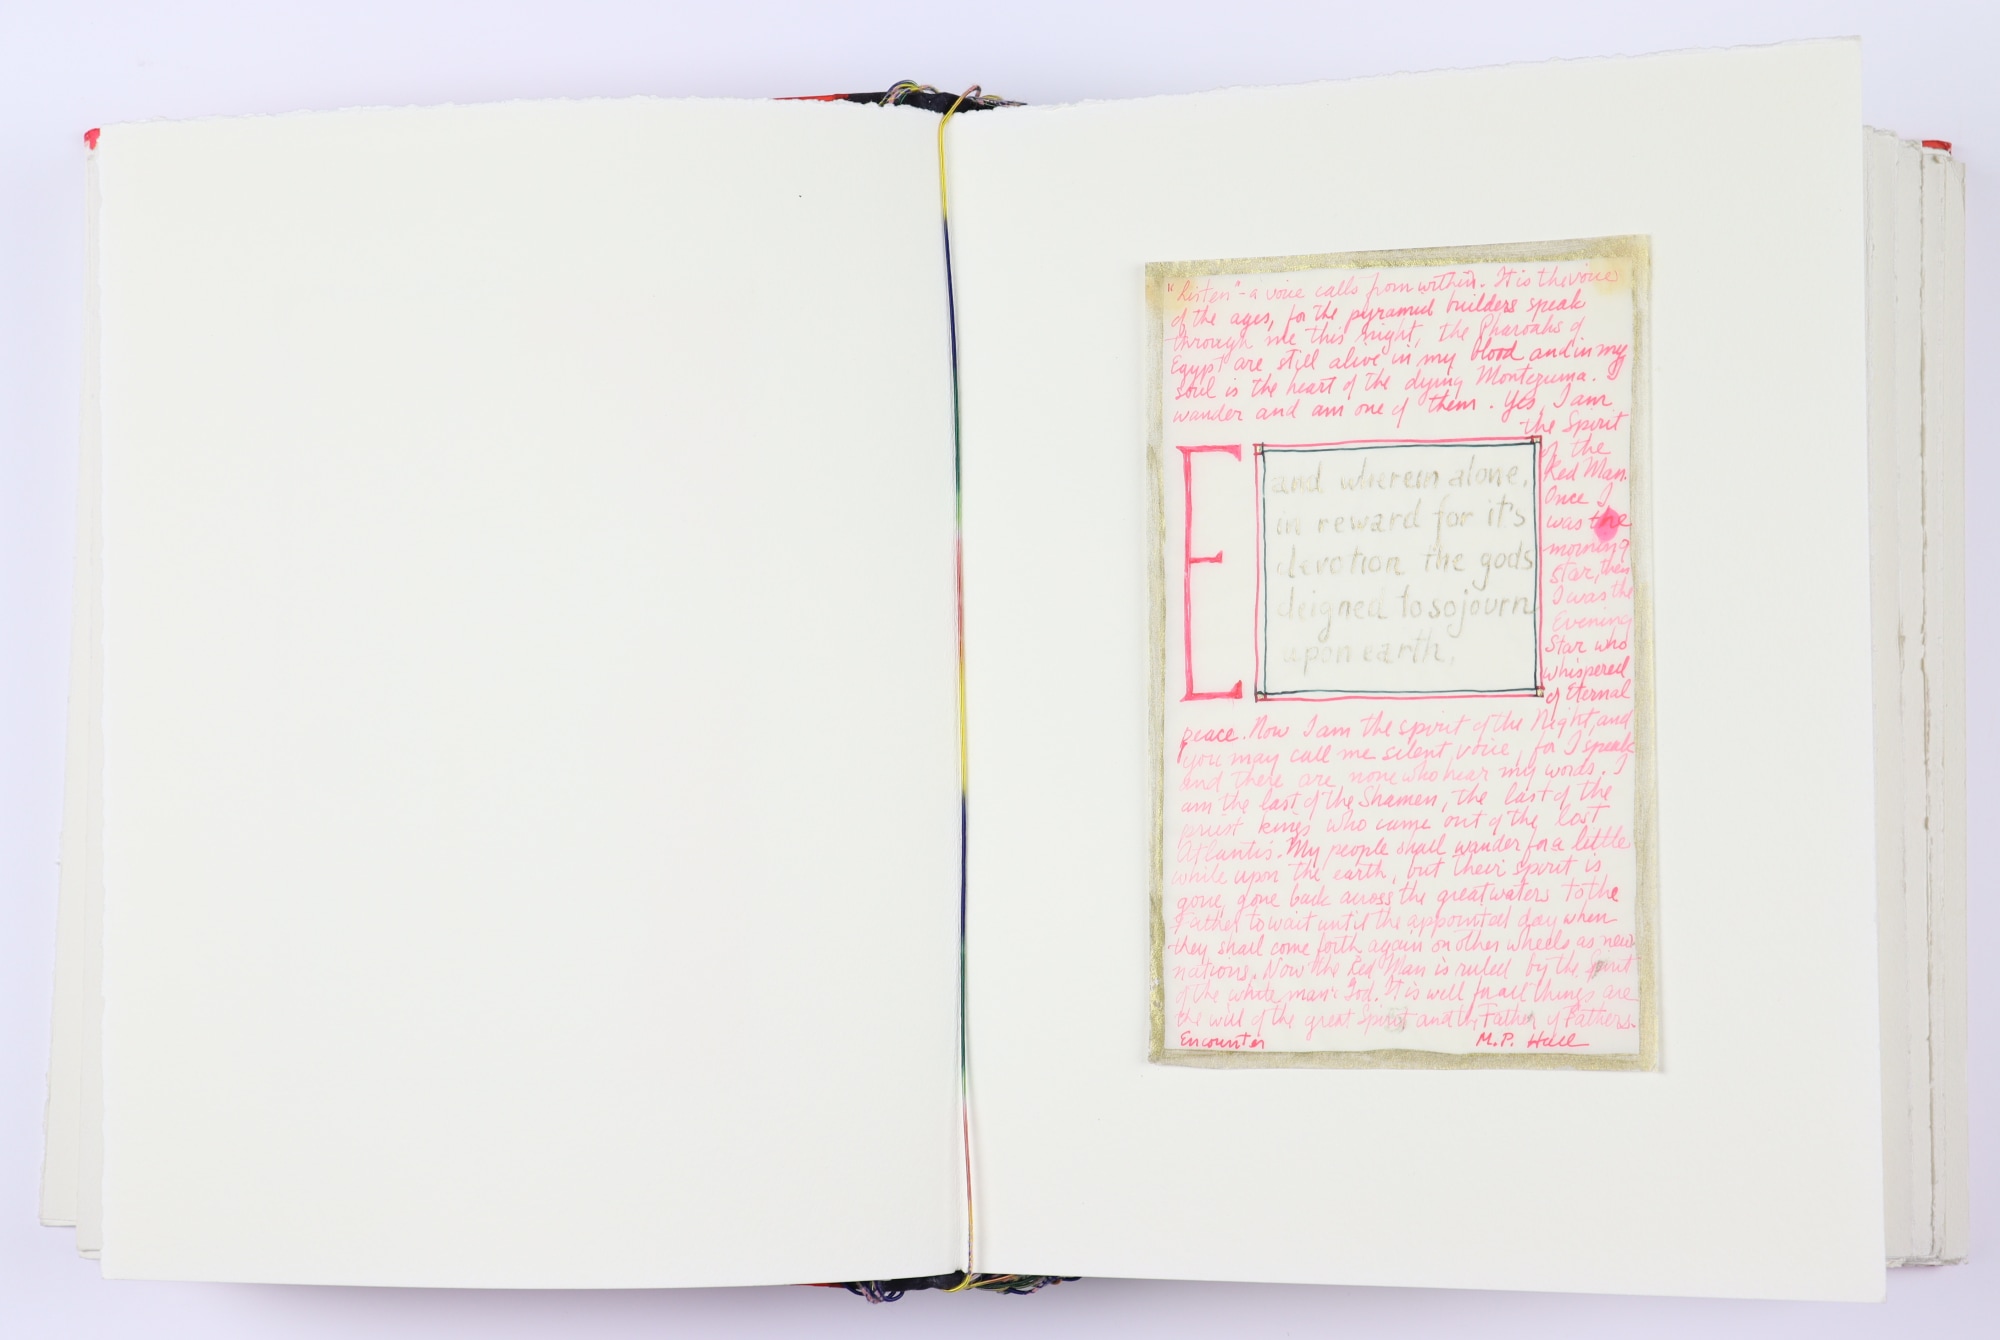 "Listen" - a voice calls from within. It is the voice
of the ages, for the pyramid builders speak
through me this night, the Pharoahs of
Egypt are still alive in my blood and in my
soul is the heart of the dying Montezuma. I
wander and am one of them. Yes, I am
the Spirit
of the
Red Man.
Once I
was the
morning
star, then
I was the
Evening
Star who
whispered
of Eternal
E
and wherein alone,
in reward for it's
devotion the gods
deigned to sojourn
upon earth,
peace. Now I am the spirit of the Night, and
you may call me silent voice, for I speak
and there are none who hear my words. I
am the last of the Shamen, the last of the
priest kings who came out of the lost
Atlantis. My people shall wander for a little
while upon the earth, but their spirit is
gone, gone back across the great waters to the
Father to wait until the appointed day when
they shall come forth again on other wheels as new
nations. Now the Red Man is ruled by the Spirit
of the white man's God. It is well for all things are
the will of the great Spirit and the Father of Fathers.
Encounter M.P. Hall